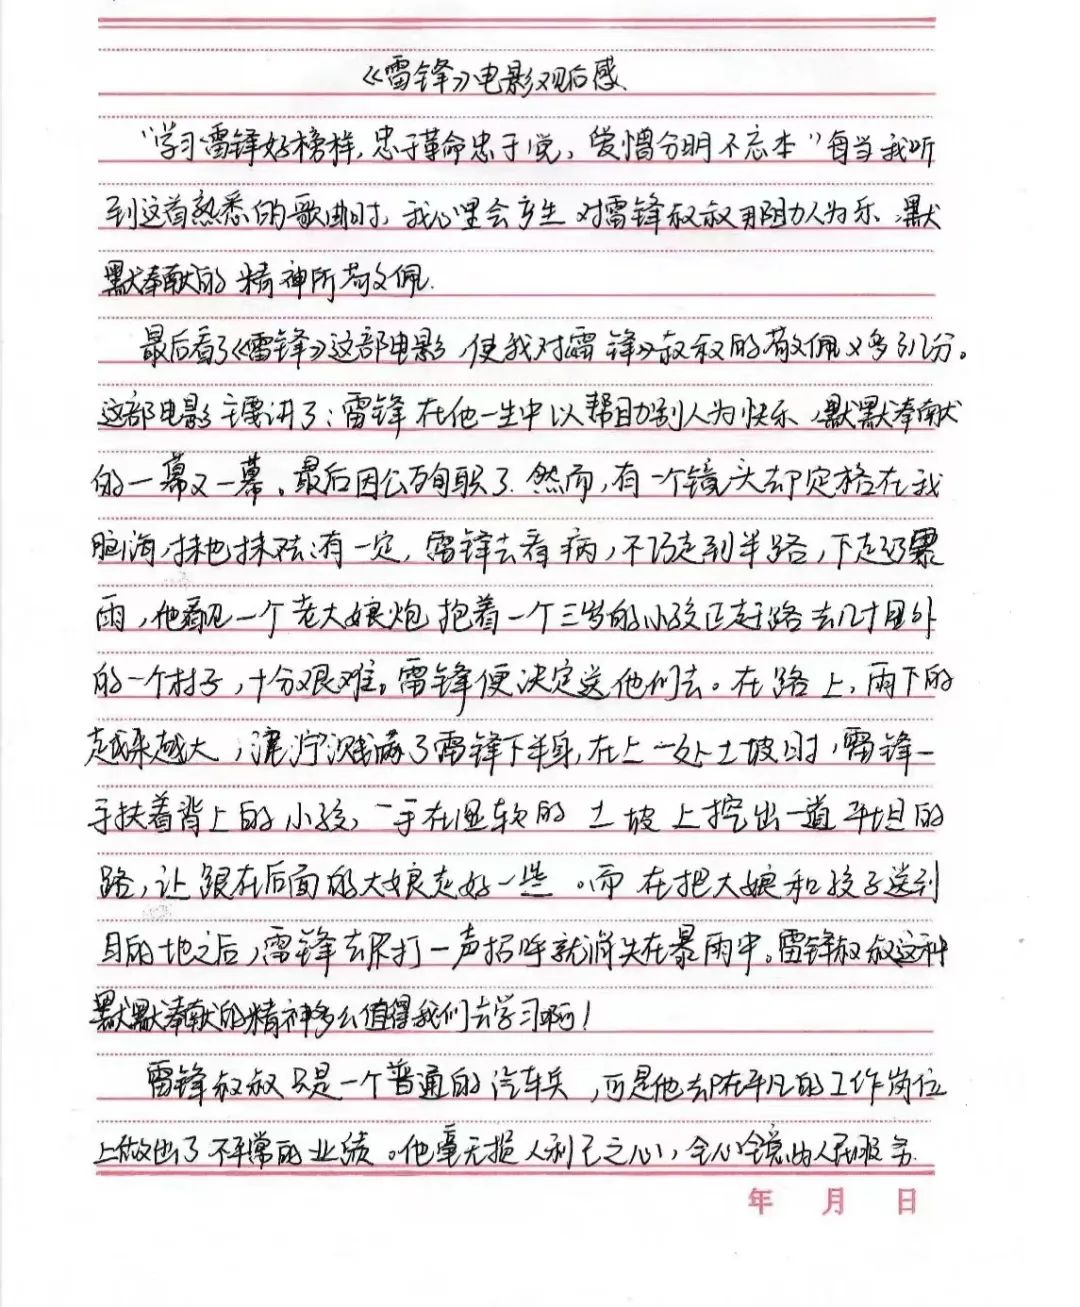 《雷锋》电影观后感
"学习雷锋好榜样,忠于革命忠于党,爱憎分明不忘本"每当我听
到这首熟悉的歌曲时,我心里会产生对雷锋叔叔那助人为乐、默
默奉献的精神所敬佩.
最后看了《雷锋》这部电影,使我对雷锋叔叔的敬佩又多了几分。
这部电影主要讲了:雷锋在他一生中以帮助别人为快乐,默默奉献
的一幕又一幕。最后因公殉职了.然而,有一个镜头却定格在我
脑海,抹也抹不去:有一定,雷锋去看病,不巧走到半路,下起了暴
雨,他看见一个老大娘抱着一个三岁的小孩正赶路去几十里外
的一个村子,十分艰难。雷锋便决定送他们去。在路上,雨下的
越来越大,泥泞溅满了雷锋下半身,在上一处土坡时,雷锋一
手扶着背上的小孩,一手在湿软的土坡上挖出一道平坦的
路,让跟在后面的大娘走好一些。而在把大娘和孩子送到
目的地之后,雷锋去不打一声招呼就消失在暴雨中。雷锋叔叔这种
默默奉献的精神多么值得我们去学习啊!
雷锋叔叔只是一个普通的汽车兵,可是他却在平凡的工作岗位
上做出了不平常的业绩。他毫无损人利己之心,全心全意为人民服务.
年 月 日